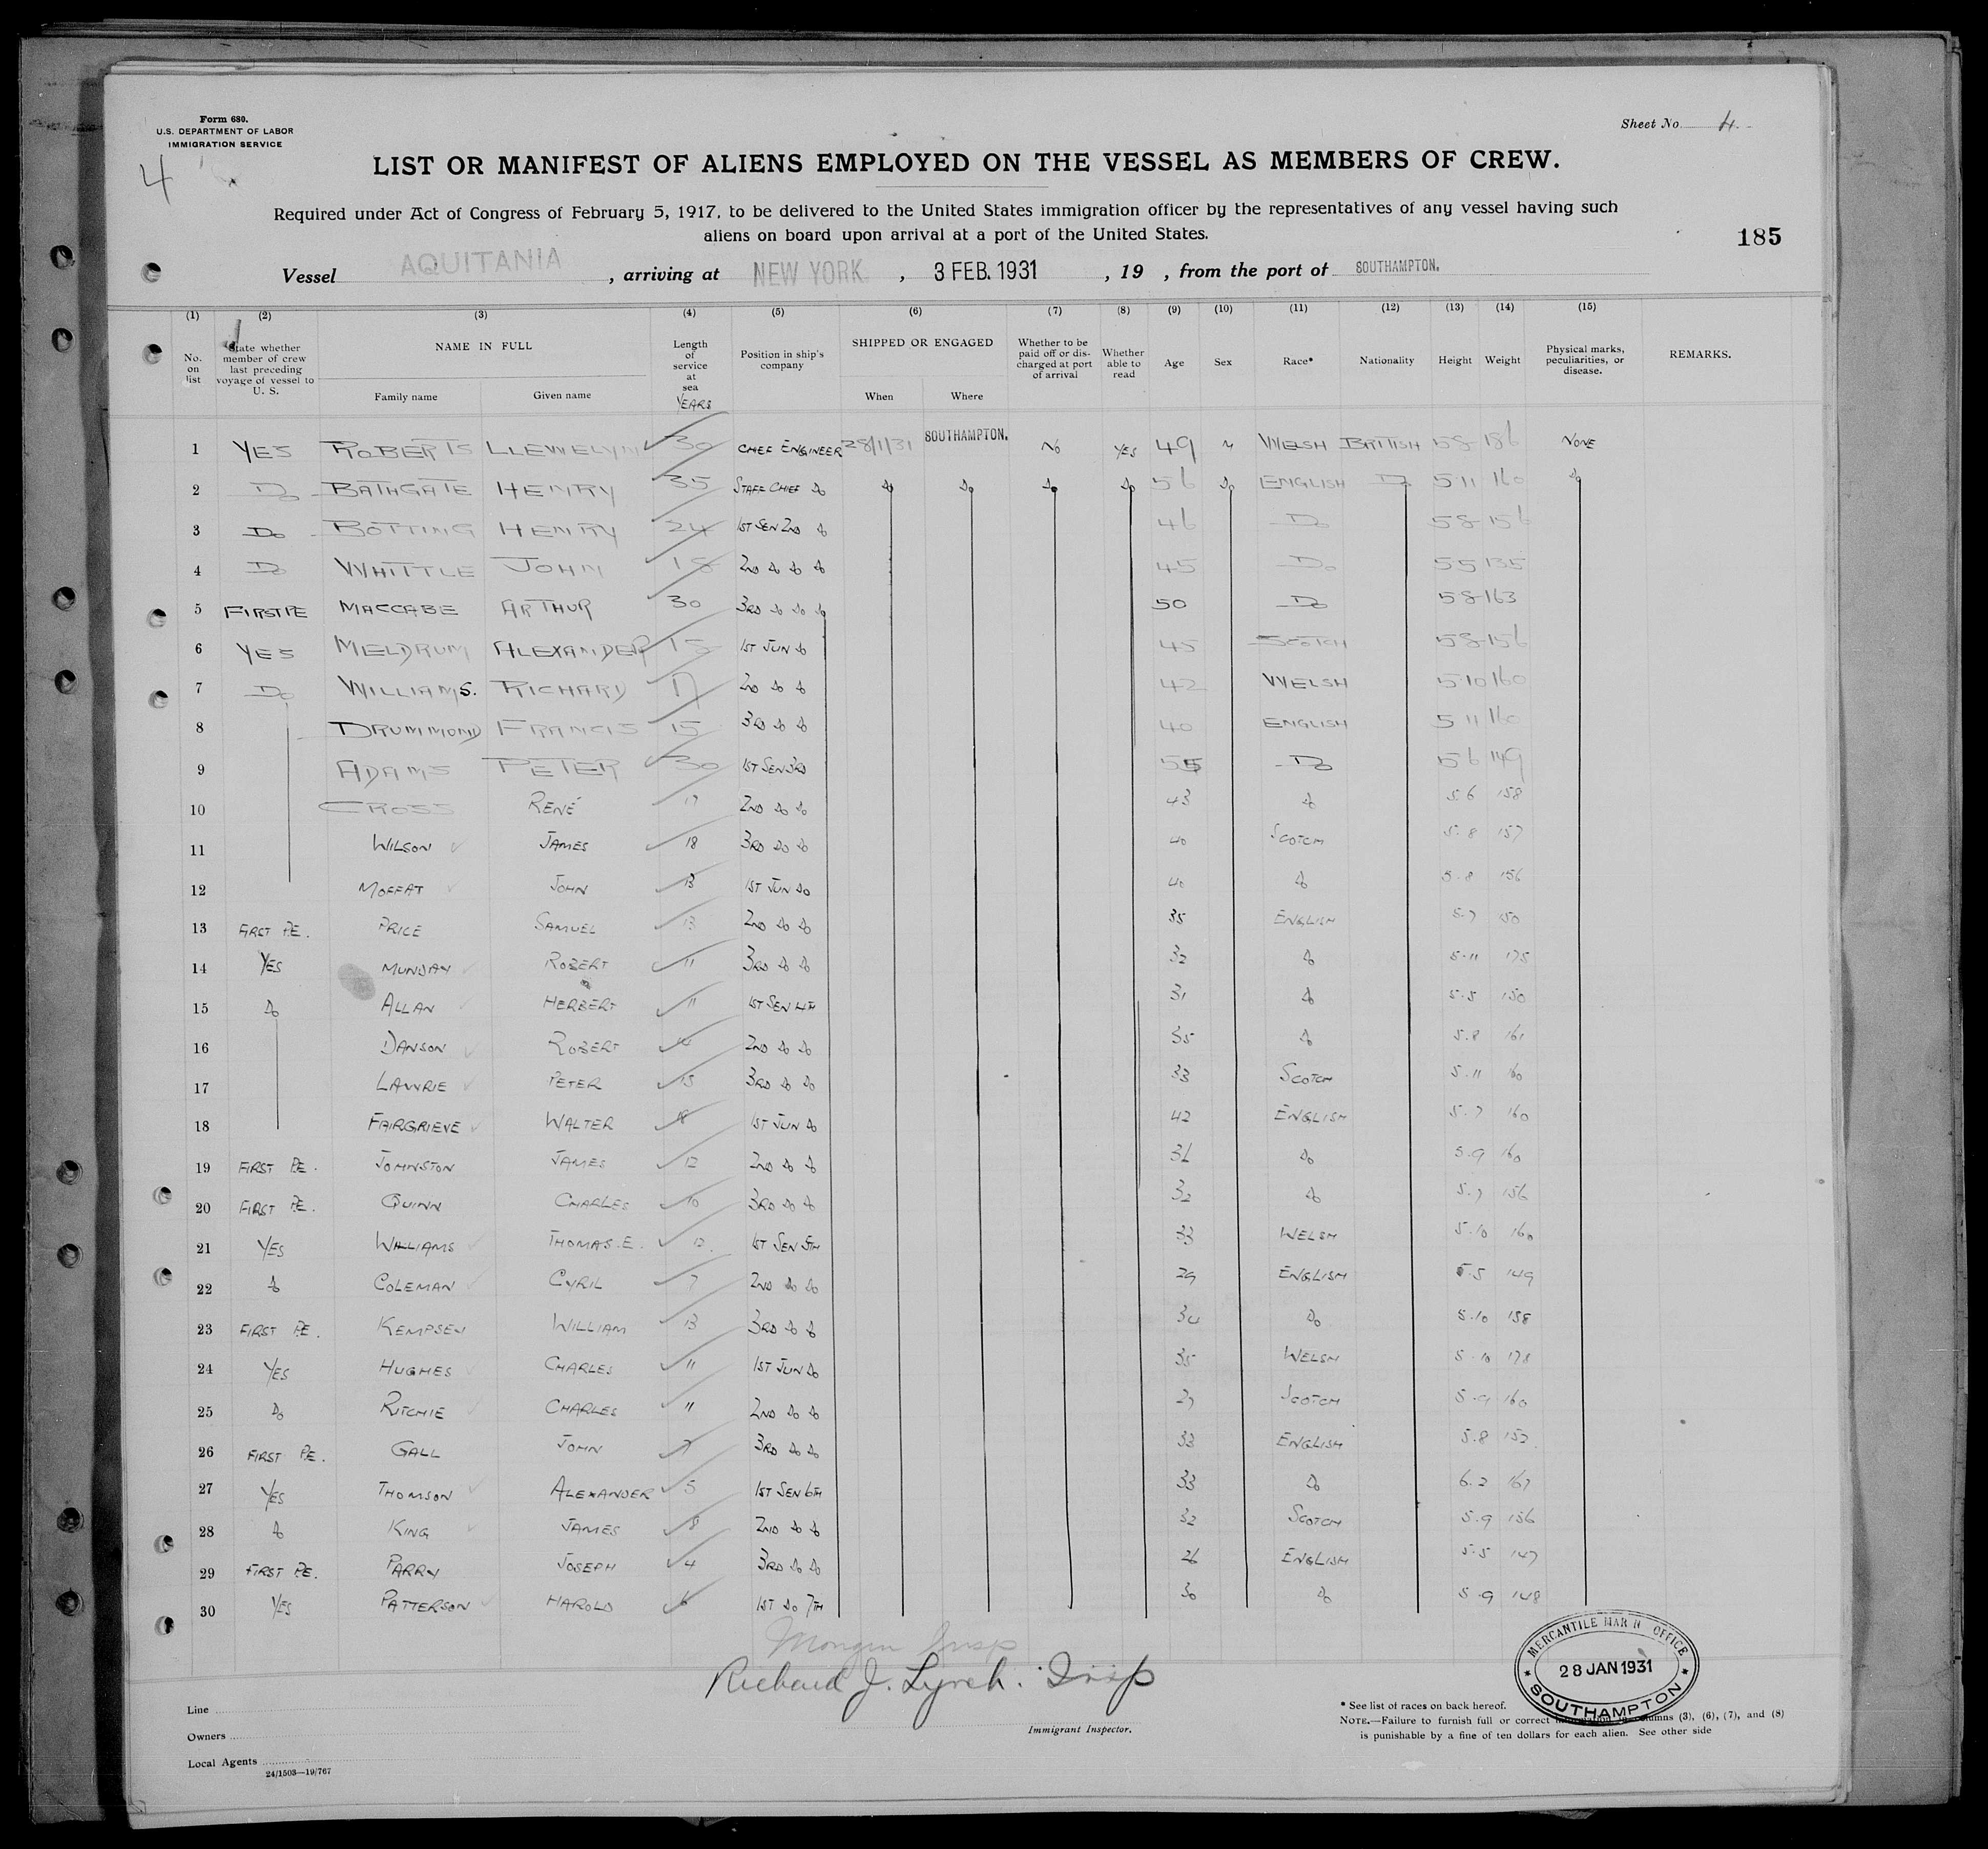 Form 680.
U.S. DEPARTMENT OF LABOR
IMMIGRATION SERVICE
Sheet No. 4.
4
LIST OR MANIFEST OF ALIENS EMPLOYED ON THE VESSEL AS MEMBERS OF CREW.
Required under Act of Congress of February 5, 1917, to be delivered to the United States immigration officer by the representatives of any vessel having such
aliens on board upon arrival at a port of the United States.
185
Vessel AQUITANIA, arriving at NEW YORK, 3 FEB. 1931, 19 , from the port of SOUTHAMPTON.
(1) (2) (3) (4) (5) (6) (7) (8) (9) (10) (11) (12) (13) (14) (15)
No. on list State whether member of crew last preceding voyage of vessel to U. S. NAME IN FULL Family name Given name Length of service at sea YEARS Position in ship's company SHIPPED OR ENGAGED When Where Whether to be paid off or discharged at port of arrival Whether able to read Age Sex Race* Nationality Height Weight Physical marks, peculiarities, or disease. REMARKS.
1 YES ROBERTS LLEWELYN 30 CHEF ENGINEER 28/1/31 SOUTHAMPTON. NO YES 49 M WELSH BRITISH 58 186 NONE
2 Do BATHGATE HENRY 35 STAFF CHIEF Do Do Do Do Do 56 Do ENGLISH Do 5 11 160 Do
3 Do BOTTING HENRY 24 1ST SEN 2ND Do 46 Do 58 156
4 Do WHITTLE JOHN 18 2ND Do Do Do 45 Do 55 135
5 FIRST PE MACCABE ARTHUR 30 3RD Do Do Do 50 Do 58 163
6 YES MELDRUM ALEXANDER 15 1ST JUN Do 45 SCOTCH 58 156
7 Do WILLIAMS. RICHARD 17 2ND Do Do 42 WELSH 510 160
8 DRUMMOND FRANCIS 15 3RD Do Do 40 ENGLISH 5 11 160
9 ADAMS PETER 30 1ST SEN 3RD 55 Do 56 149
10 CROSS RENÉ 17 2ND Do Do 43 Do 5.6 158
11 WILSON JAMES 18 3RD Do Do 40 SCOTCH 5.8 157
12 MOFFAT JOHN 13 1ST JUN Do 40 Do 5.8 156
13 FIRST PE. PRICE SAMUEL 13 2ND Do Do 35 ENGLISH 5.7 150
14 YES MUNDAY ROBERT 11 3RD Do Do 32 Do 5.11 175
15 Do ALLAN HERBERT 11 1ST SEN 4TH 31 Do 5.5 150
16 DANSON ROBERT 14 2ND Do Do 35 Do 5.8 161
17 LAWRIE PETER 15 3RD Do Do 33 SCOTCH 5.11 160
18 FAIRGRIEVE WALTER 18 1ST JUN Do 42 ENGLISH 5.7 160
19 FIRST PE. JOHNSTON JAMES 12 2ND Do Do 36 Do 5.9 160
20 FIRST PE. QUINN CHARLES 10 3RD Do Do 32 Do 5.7 156
21 YES WILLIAMS THOMAS. E. 12. 1ST SEN 5TH 33 WELSH 5.10 160
22 Do COLEMAN CYRIL 7 2ND Do Do 29 ENGLISH 5.5 149
23 FIRST PE. KEMPSEY WILLIAM 13 3RD Do Do 34 Do 5.10 158
24 YES HUGHES CHARLES 11 1ST JUN Do 35 WELSH 5.10 178
25 Do RITCHIE CHARLES 11 2ND Do Do 27 SCOTCH 5.9 160
26 FIRST PE. GALL JOHN 7 3RD Do Do 33 ENGLISH 5.8 157
27 YES THOMSON ALEXANDER 5 1ST SEN 6TH 33 Do 6.2 167
28 Do KING JAMES 8 2ND Do Do 32 SCOTCH 5.9 156
29 FIRST PE. PARRY JOSEPH 4 3RD Do Do 26 ENGLISH 5.5 147
30 YES PATTERSON HAROLD 6 1ST Do 7TH 30 Do 5.9 148
Insp
Richard J. Lynch. Insp
Immigrant Inspector.
MERCANTILE MARINE OFFICE
28 JAN 1931
SOUTHAMPTON
Line
Owners
Local Agents
24/1503—19/767
* See list of races on back hereof.
NOTE.—Failure to furnish full or correct information in columns (3), (6), (7), and (8)
is punishable by a fine of ten dollars for each alien. See other side